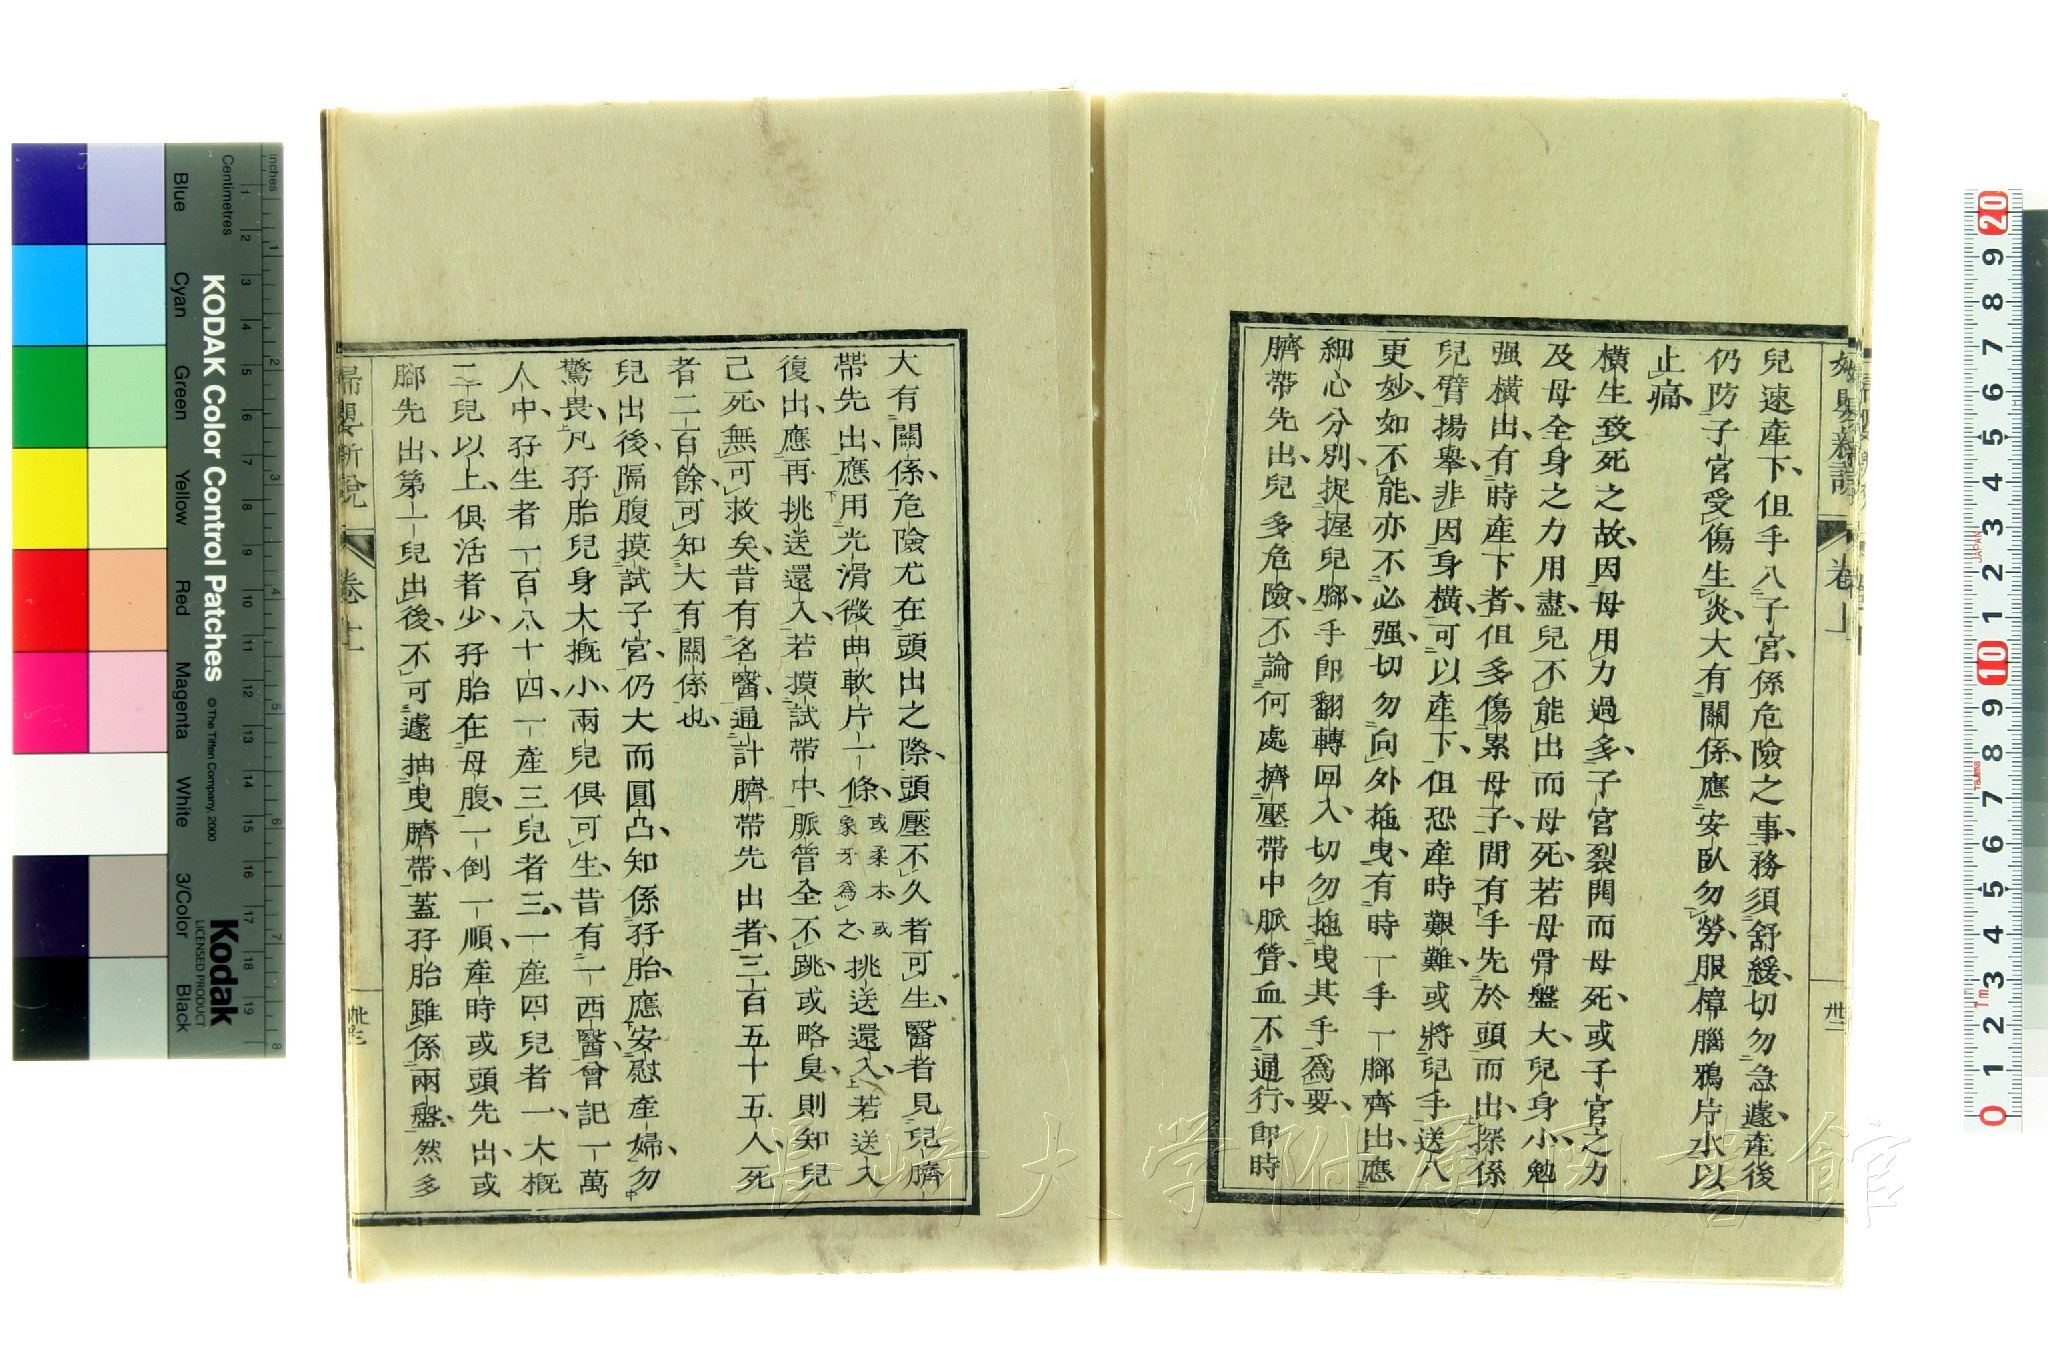 兒速產下、但手入子宮、係危險之事、務須舒緩、切勿急遽、產後
仍防子宮受傷生炎、大有關係、應安臥勿勞、服樟腦鴉片水以
止痛、
橫生致死之故、因母用力過多、子宮裂開而母死、或子宮之力
及母全身之力用盡、兒不能出而母死、若母骨盤大、兒身小、勉
强橫出、有時產下者、但多傷累母子、間有手先於頭而出、探係
兒臂揚舉、非因身橫、可以產下、但恐產時艱難、或將兒手送入
更妙、如不能、亦不必强、切勿向外拖曳、有時一手一腳齊出、應
細心分別、捉握兒腳、手卽翻轉回入、切勿拖曳其手爲要、
臍帶先出、兒多危險、不論何處擠壓帶中脈管、血不通行、卽時
卷上
丗二
大有關係、危險尤在頭出之際、頭壓不久者可生、醫者見兒臍
帶先出、應用光滑微曲軟片一條、或柔木或象牙爲之、挑送還入、若送入
復出、應再挑送還入、若摸試帶中脈管全不跳、或略臭、則知兒
己死、無可救矣、昔有名醫、通計臍帶先出者、三百五十五人、死
者二百餘、可知大有關係也、
兒出後、隔腹摸試子宮、仍大而圓凸、知係孖胎、應安慰產婦、勿
驚畏、凡孖胎兒身大槪小、兩兒俱可生、昔有一西醫、曾記一萬
人中、孖生者一百八十四、一產三兒者三、一產四兒者一、大槪
二兒以上、俱活者少、孖胎在母腹、一倒一順、產時或頭先出、或
腳先出、第一兒出後、不可遽抽曳臍帶、蓋孖胎雖係兩盤、然多
婦嬰新說
卷上
KODAK Color Control Patches
© The Tiffen Company, 2000
Kodak
LICENSED PRODUCT
Inches
Centimetres
Blue
Cyan
Green
Yellow
Red
Magenta
White
3/Color
Black
長崎大学附属図書館
JAPAN